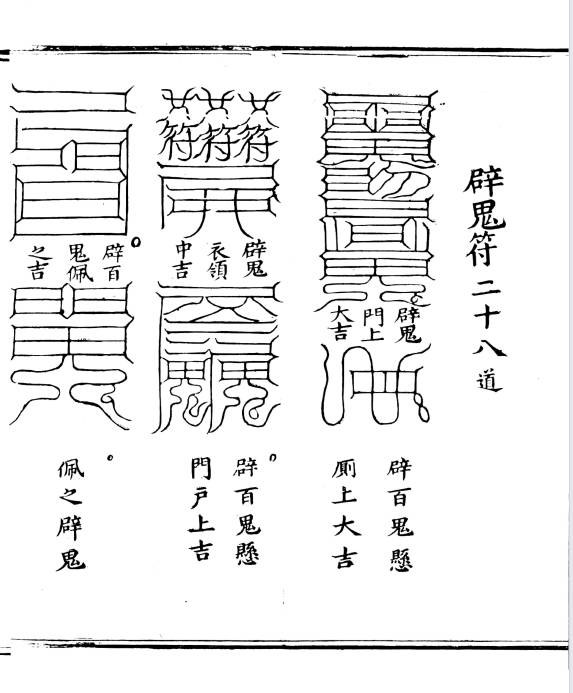 辟鬼符二十八道
辟鬼
門上
大吉
辟百鬼懸
厠上大吉
辟鬼
衣領
中吉
辟百鬼懸
門戶上吉
辟百
鬼佩
之吉
佩之辟鬼